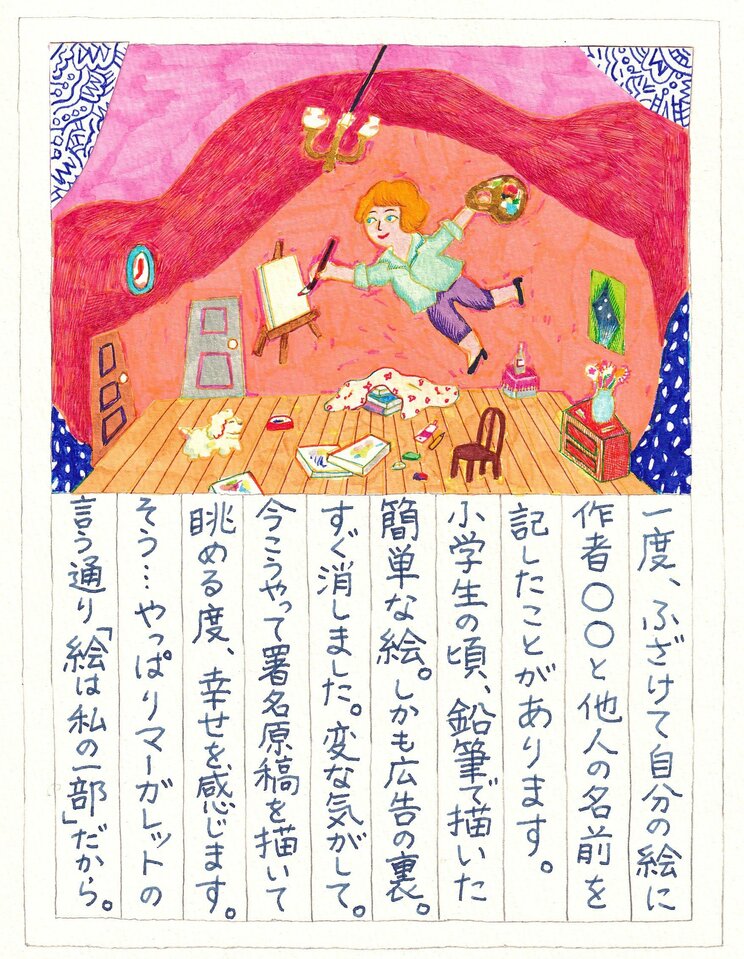 一度、ふざけて自分の絵に
作者〇〇と他人の名前を
記したことがあります。
小学生の頃、鉛筆で描いた
簡単な絵。しかも広告の裏。
すぐ消しました。変な気がして。
今こうやって署名原稿を描いて
眺める度、幸せを感じます。
そう…やっぱりマーガレットの
言う通り「絵は私の一部」だから。